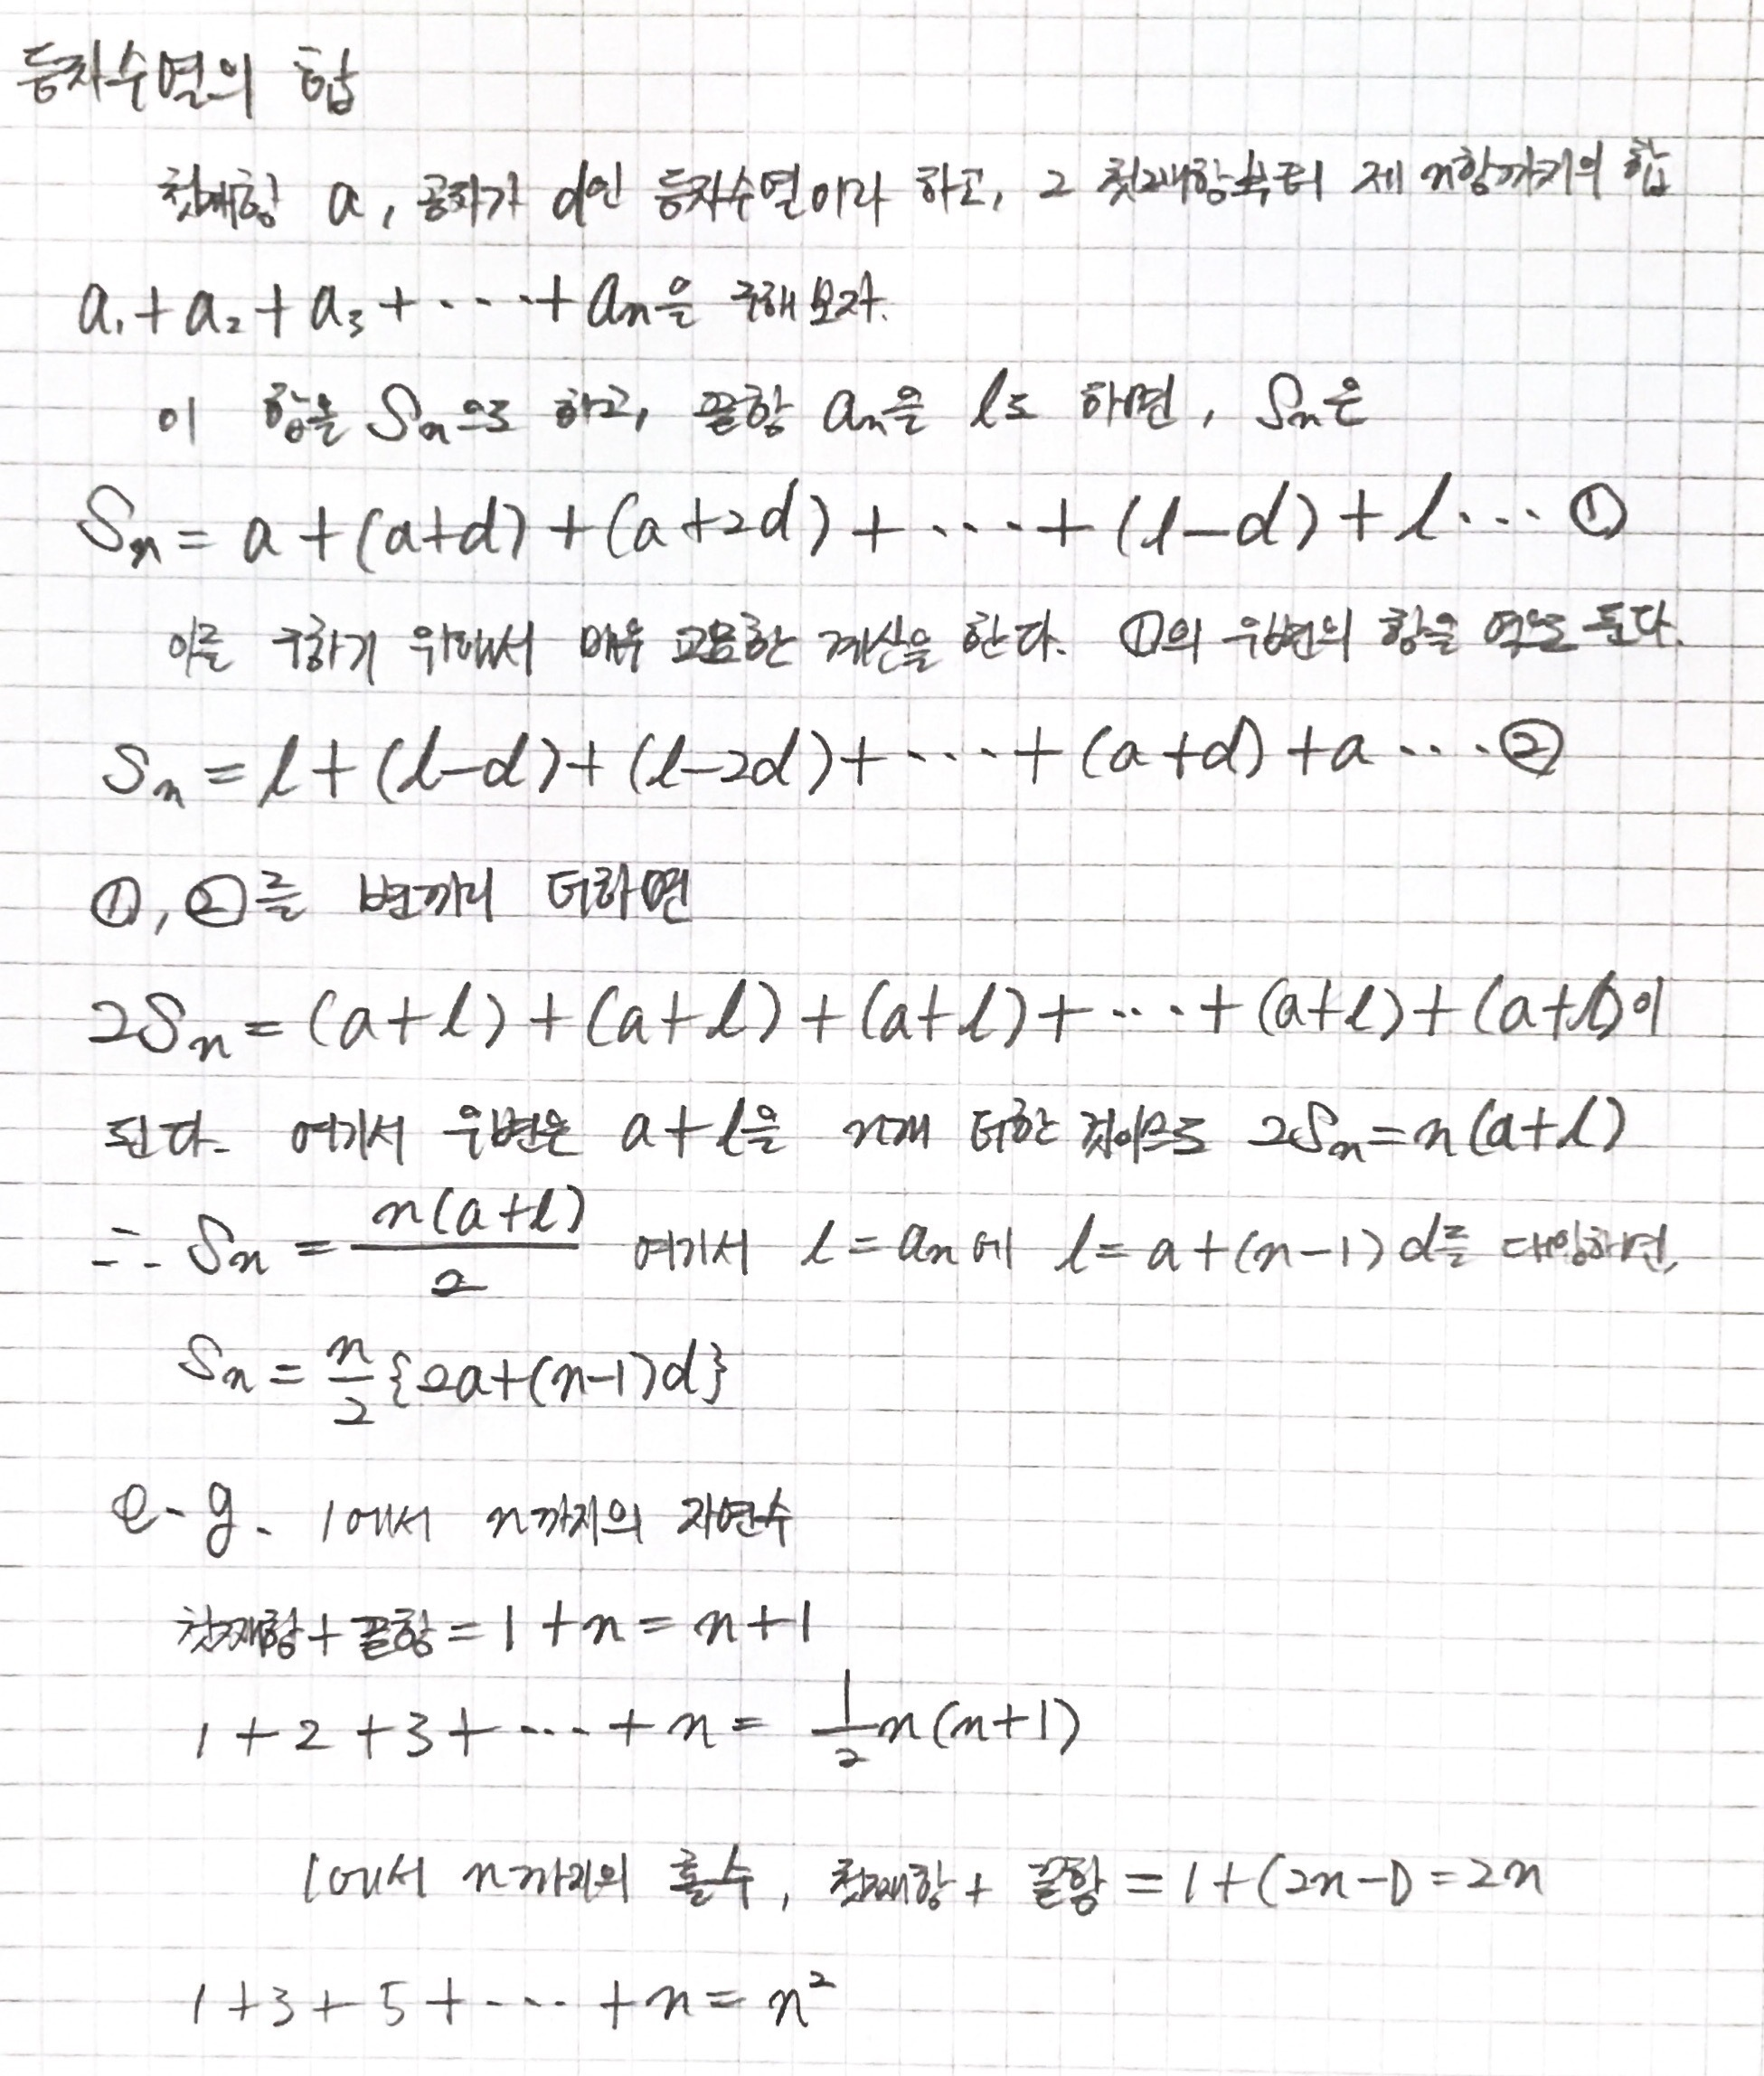 등차수열의 합
첫째항 a, 공차가 d인 등차수열이라 하고, 그 첫째항부터 제 n항까지의 합
a₁+a₂+a₃+‧‧‧‧+aₙ을 구해보자.
이 합을 Sₙ으로 하고, 끝항 aₙ을 l로 하면, Sₙ은
Sₙ = a+(a+d)+(a+2d)+‧‧‧‧+(l-d)+l‧‧‧ ①
이를 구하기 위해서 매우 교묘한 계산을 한다. ①의 우변의 항을 역으로 둔다.
Sₙ = l+(l-d)+(l-2d)+‧‧‧‧+(a+d)+a‧‧‧‧②
①, ②를 변끼리 더하면
2Sₙ = (a+l)+(a+l)+(a+l)+‧‧‧‧+(a+l)+(a+l)이
된다. 여기서 우변은 a+l을 n개 더한 것이므로 2Sₙ=n(a+l)
∴ Sₙ = n(a+l)/2 여기서 l=aₙ에 l=a+(n-1)d를 대입하면,
Sₙ = n/2{2a+(n-1)d}
e.g. 1에서 n까지의 자연수
첫째항+끝항=1+n=n+1
1+2+3+‧‧‧‧+n= 1/2n(n+1)
1에서 n까지의 홀수, 첫째항+ 끝항=1+(2n-1)=2n
1+3+5+‧‧‧‧+n=n²